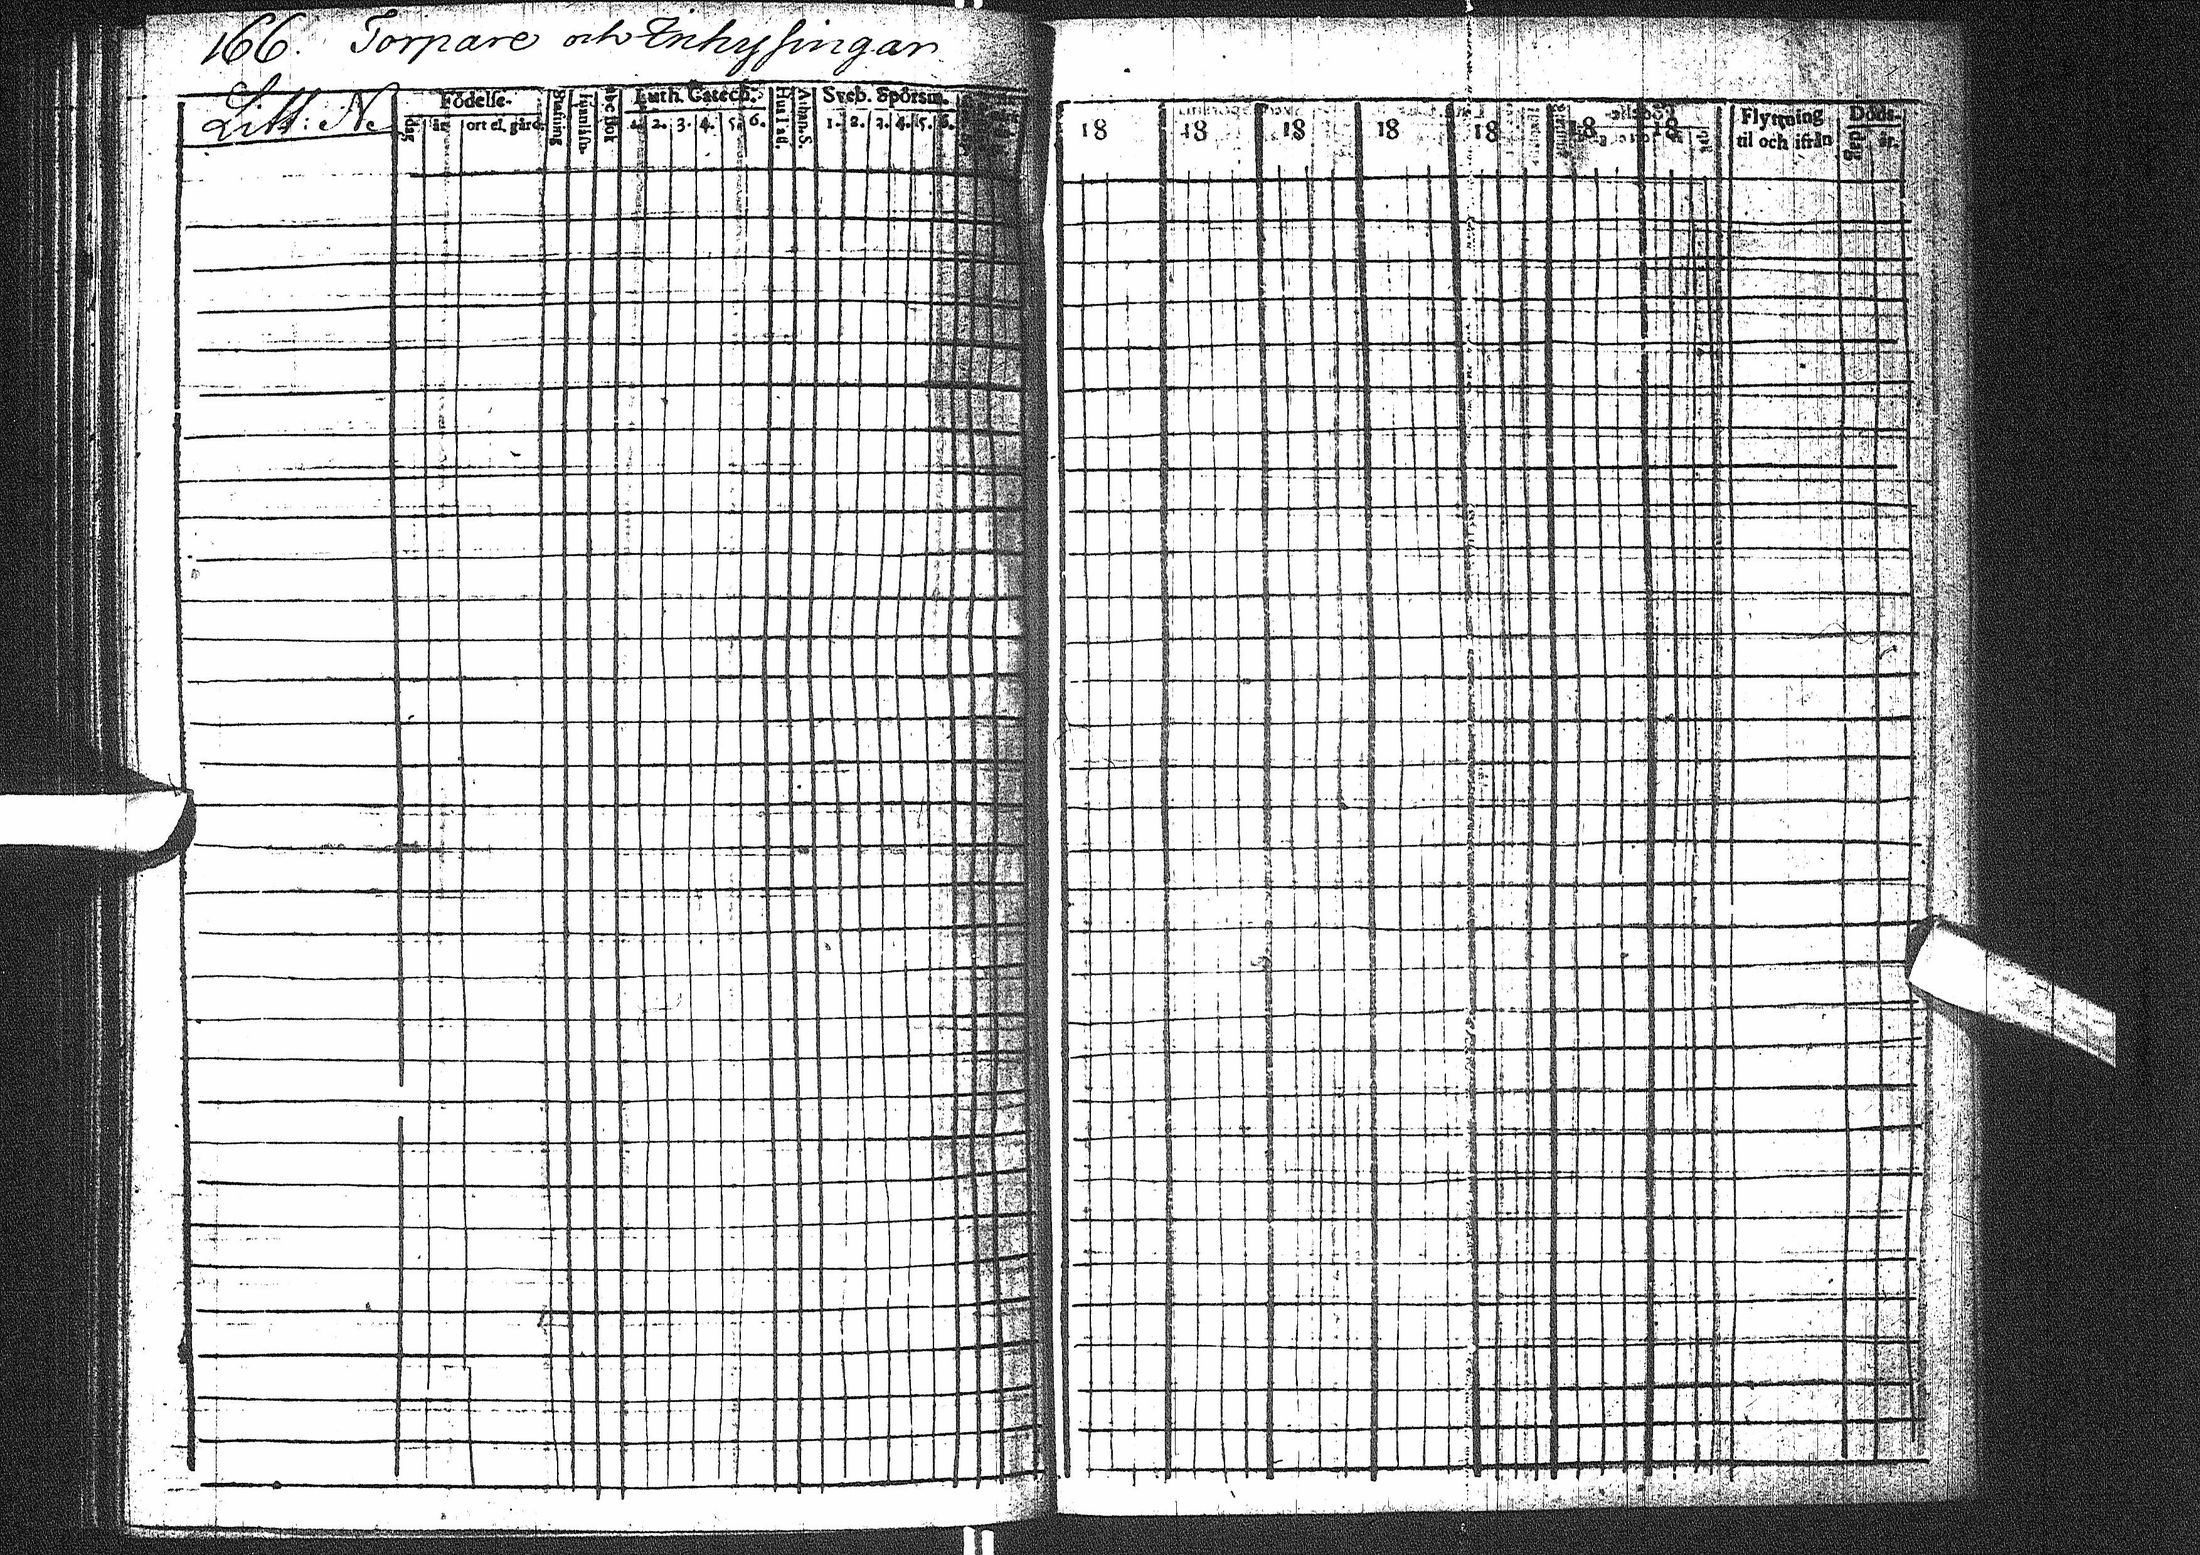 166. Torpare och Inhysingar
Litt: N.
Födelse-
dag år ort el. gård.
Stafning
abc Bok
Luth. Catech.
1. 2. 3. 4. 5. 6.
Hustafl.
Athan. S.
Sveb. Spörsm.
1. 2. 3. 4. 5. 6.
18 18 18 18 18 18 18
Flyttning
til och ifrån
Döds-
dag år.